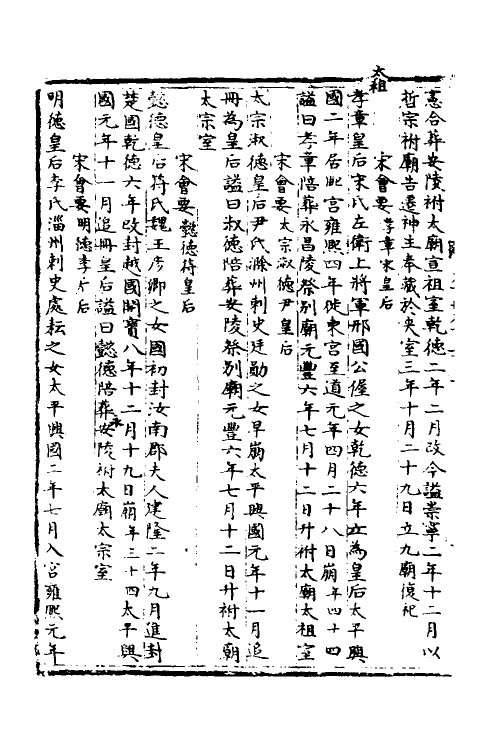 憲合葬安陵祔太廟宣祖室乾德二年二月改今謚崇寧二年十二月以
哲宗祔廟告遷神主奉藏於夾室三年十月二十九日立九廟復祀
太祖
宋會要 孝章宋皇后
孝章皇后宋氏左衛上將軍邢國公偓之女乾德六年立為皇后太平興
國二年居西宮雍熙四年徙東宮至道元年四月二十八日崩年四十四
謚曰孝章陪葬永昌陵祭別廟元豐六年七月十二日升祔太廟太祖室
宋會要 太宗淑德尹皇后
太宗淑德皇后尹氏滁州刺史廷勛之女早崩太平興國元年十一月追
冊為皇后謚曰淑德陪葬安陵祭別廟元豐六年七月十二日升祔太廟
太宗室
宋會要 懿德符皇后
懿德皇后符氏魏王彥卿之女國初封汝南郡夫人建隆二年九月進封
楚國乾德六年改封越國開寶八年十二月十九日崩年三十四太平興
國元年十一月追冊皇后謚曰懿德陪葬安陵祔太廟太宗室
永
宋會要 明德李后
明德皇后李氏淄州刺史處耘之女太平興國二年七月入宮雍熙元年